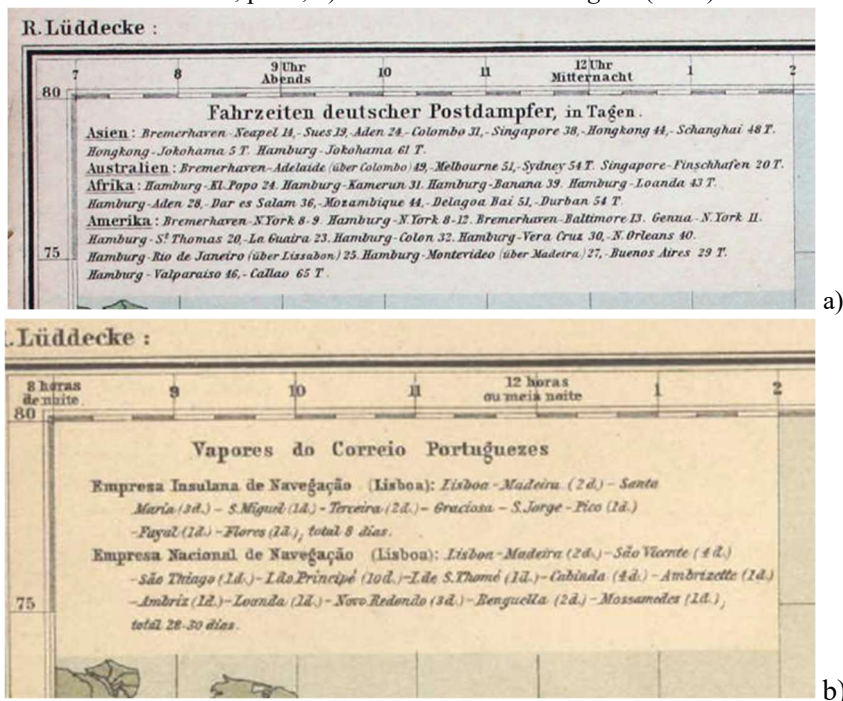 R. Lüddecke :
7 8 9 Uhr Abends 10 11 12 Uhr Mitternacht 1 2
80
Fahrzeiten deutscher Postdampfer, in Tagen.
Asien : Bremerhaven-Neapel 14,- Sues 19,-Aden 24,-Colombo 31,-Singapore 38,-Hongkong 44,- Schanghai 48 T.
Hongkong-Jokohama 5 T. Hamburg-Jokohama 61 T.
Australien : Bremerhaven-Adelaide (über Colombo) 49,-Melbourne 51,-Sydney 54 T. Singapore-Finschhafen 20 T.
Afrika : Hamburg-Kl. Popo 24. Hamburg-Kamerun 31. Hamburg-Banana 39. Hamburg-Loanda 43 T.
Hamburg-Aden 28,-Dar es Salam 36,-Mozambique 44,-Delagoa Bai 51,-Durban 54 T.
Amerika : Bremerhaven-N.York 8-9. Hamburg-N.York 8-12. Bremerhaven-Baltimore 13. Genua-N.York 11.
Hamburg-St. Thomas 20,-La Guaira 23. Hamburg-Colon 32. Hamburg-Vera Cruz 30,-N. Orleans 40.
75
Hamburg-Rio de Janeiro (über Lissabon) 25. Hamburg-Montevideo (über Madeira) 27,-Buenos Aires 29 T.
Hamburg-Valparaiso 46,-Callao 65 T.
a)
. Lüddecke :
8 horas de noite 9 10 11 12 horas ou meia noite 1 2
80
Vapores do Correio Portuguezes
Empresa Insulana de Navegação (Lisboa): Lisboa-Madeira (2d.)-Santa
Maria (3d.)-S. Miguel (1d.)-Terceira (2d.)-Graciosa-S. Jorge-Pico (1d.)
-Fayal (1d.)-Flores (1d.), total 8 dias.
Empresa Nacional de Navegação (Lisboa): Lisboa-Madeira (2d.)-São Vicente (4d.)
-São Thiago (1d.)-I. do Principé (10d.)-I. de S. Thomé (1d.)-Cabinda (4d.)-Ambrizette (1d.)
75
-Ambriz (1d.)-Loanda (1d.)-Novo Redondo (3d.)-Benguella (2d.)-Mossamedes (1d.),
total 28-30 dias.
b)